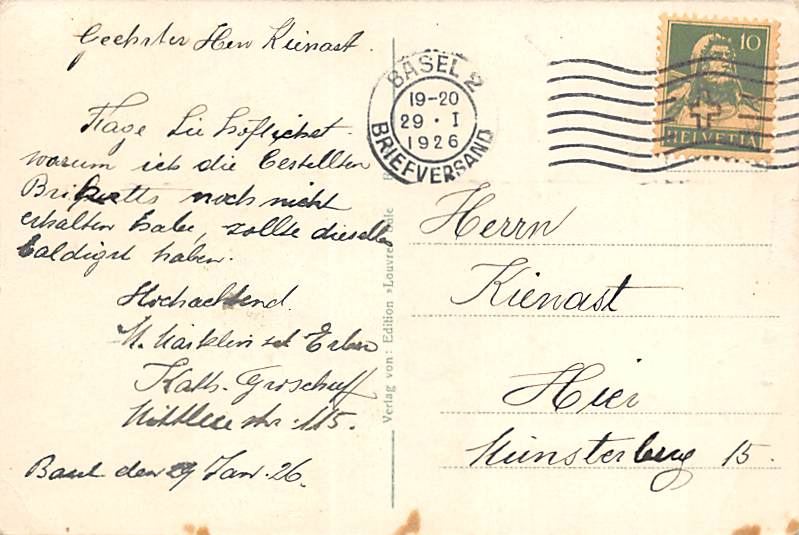 Geehrter Herr Kienast.
Frage Sie höflichst
warum ich die bestellten
Briketts noch nicht
erhalten habe, sollte dieselbe
baldigst haben.
Hochachtend.
Erben
Kath. Groschupf
str. 115.
Basel den 29 Jan. 26.
Verlag von: Edition „Louvre“
BASEL 2
19-20
29 · I
1926
BRIEFVERSAND
10
HELVETIA
Herrn
Kienast
Hier
Münsterberg 15.